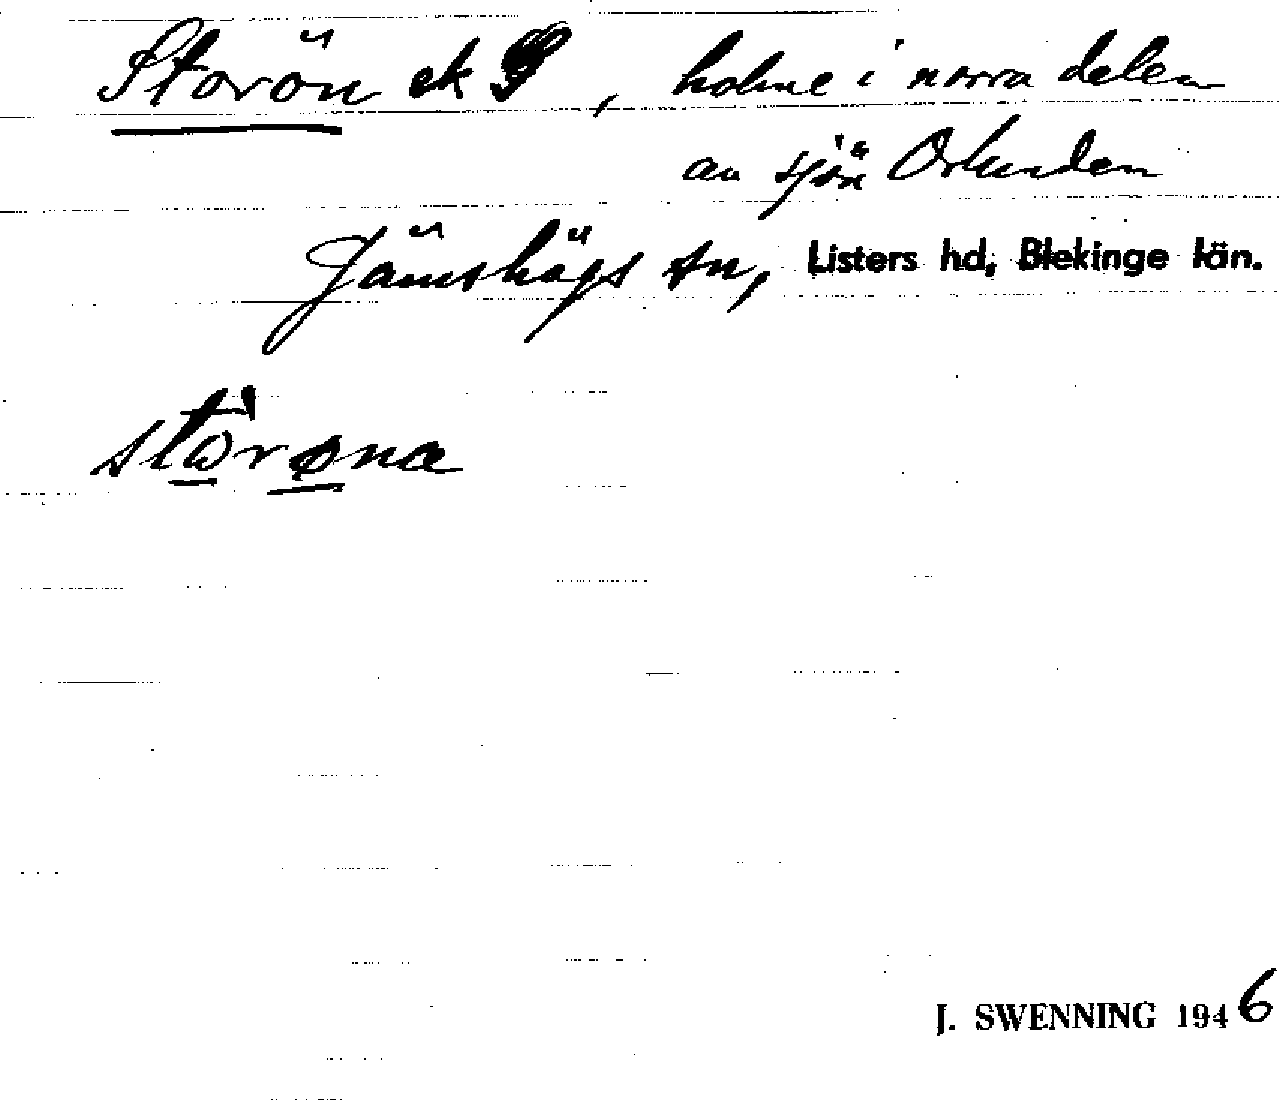 Storön ek, holme i norra delen
av sjön Orlunden
Jämshögs sn, Listers hd, Blekinge län.
störøna
J. SWENNING 1946